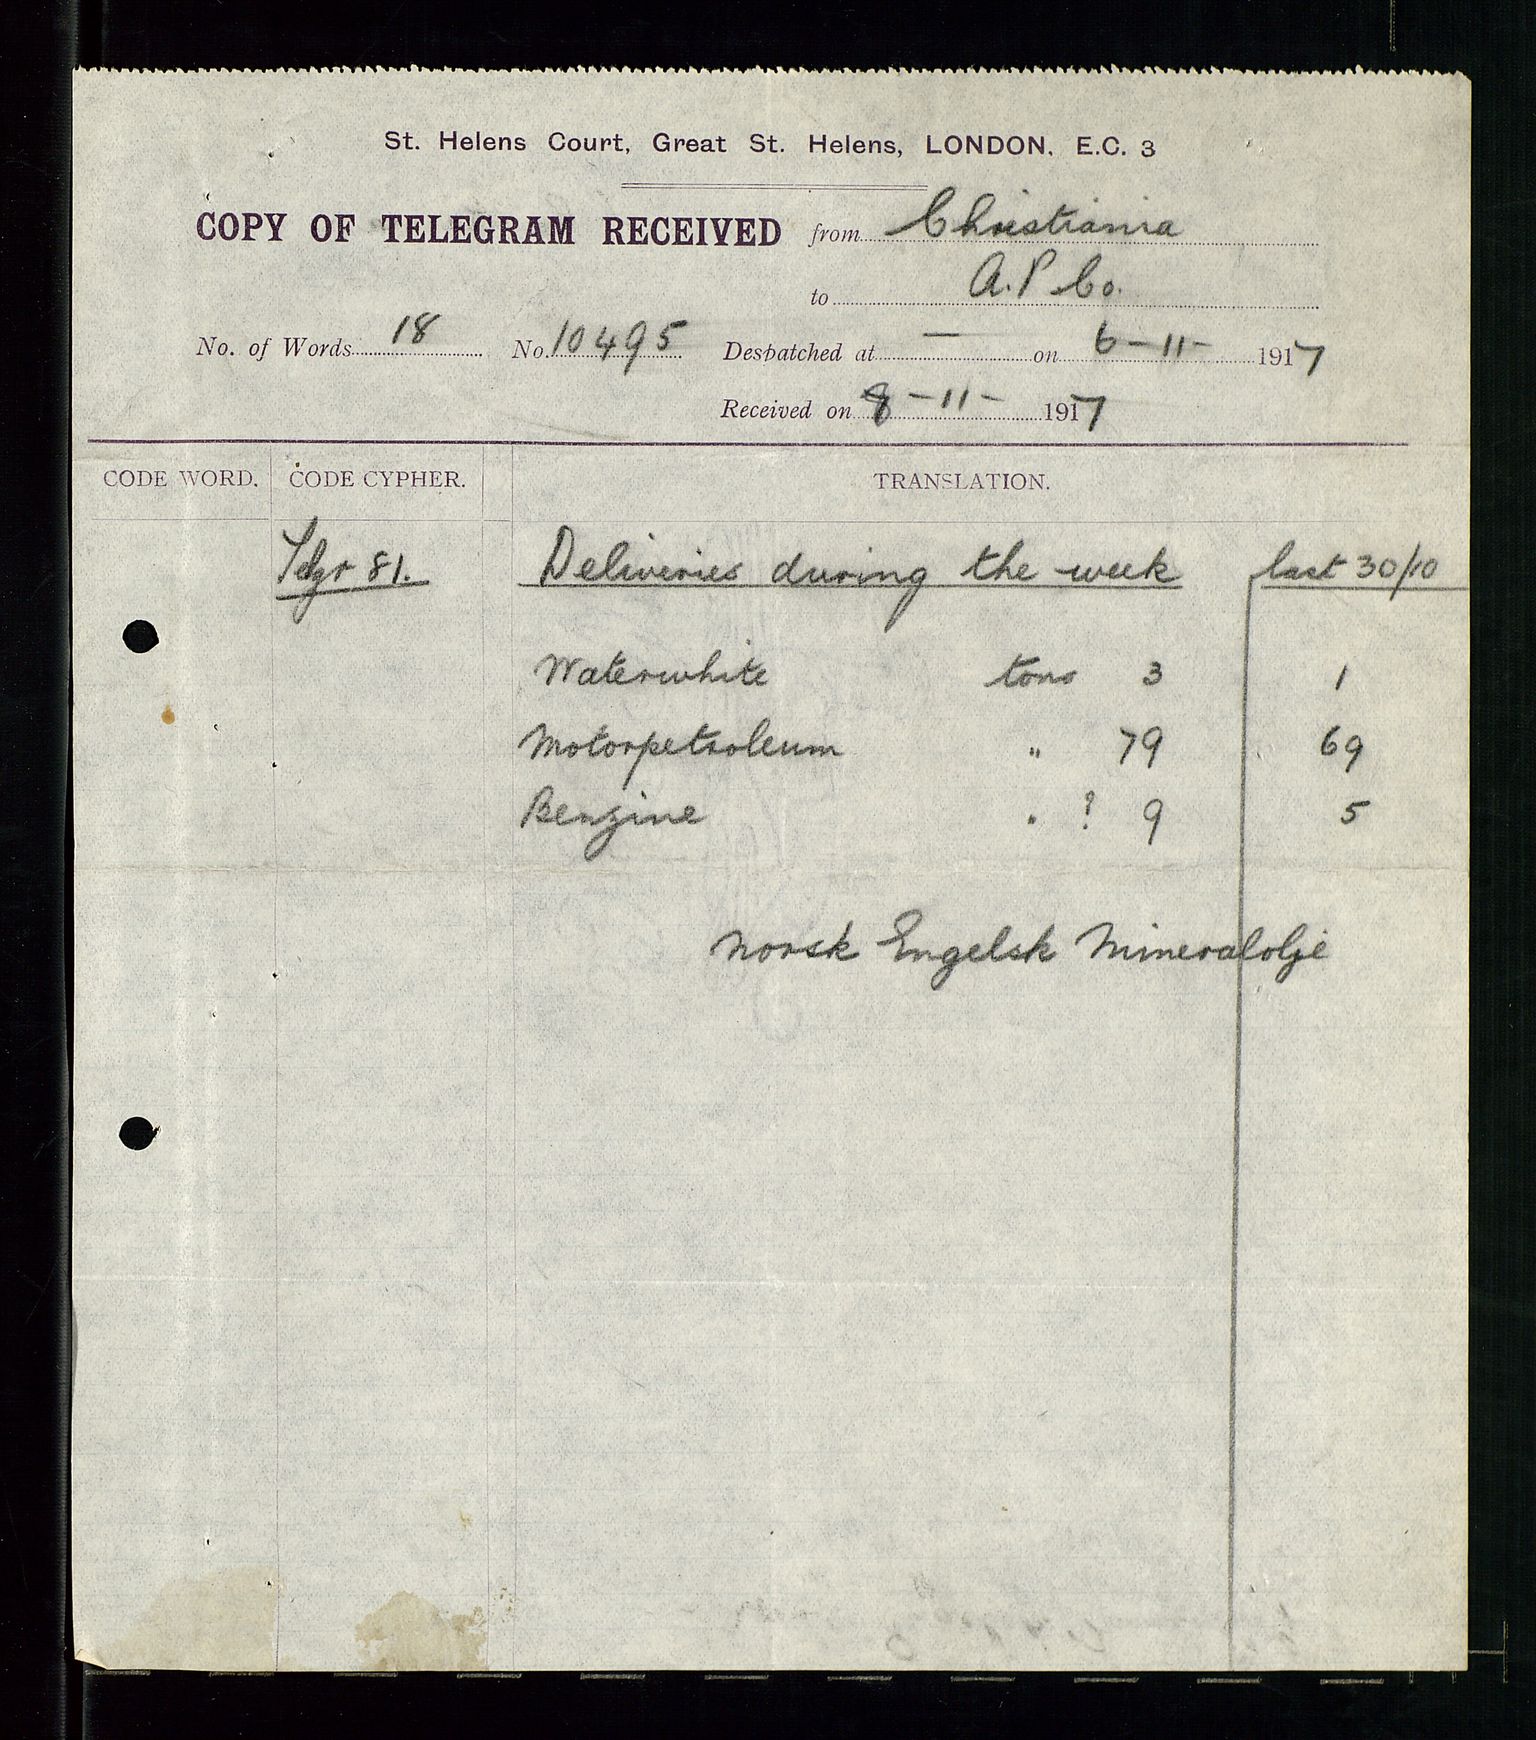 St. Helens Court, Great St. Helens, LONDON. E.C. 3
COPY OF TELEGRAM RECEIVED from Christiania
to A.P Co.
No. of Words 18 No. 10495 Despatched at — on 6-11- 1917
Received on 8-11- 1917
CODE WORD. CODE CYPHER. TRANSLATION.
Telgr 81. Deliveries during the week last 30/10
Waterwhite tons 3 1
Motorpetroleum " 79 69
Benzine " ? 9 5
Norsk Engelsk Mineralolje